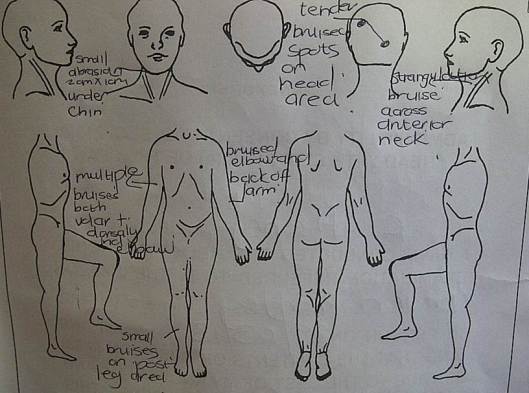 small
abrasion
2cm x 1cm
under
chin
tender
bruised
spots
on
head
area
strangulation
bruise
across
anterior
neck
multiple
bruises
both
volar +
dorsally
elbow
bruised
elbow and
back of
arm
small
bruises
on post
leg area